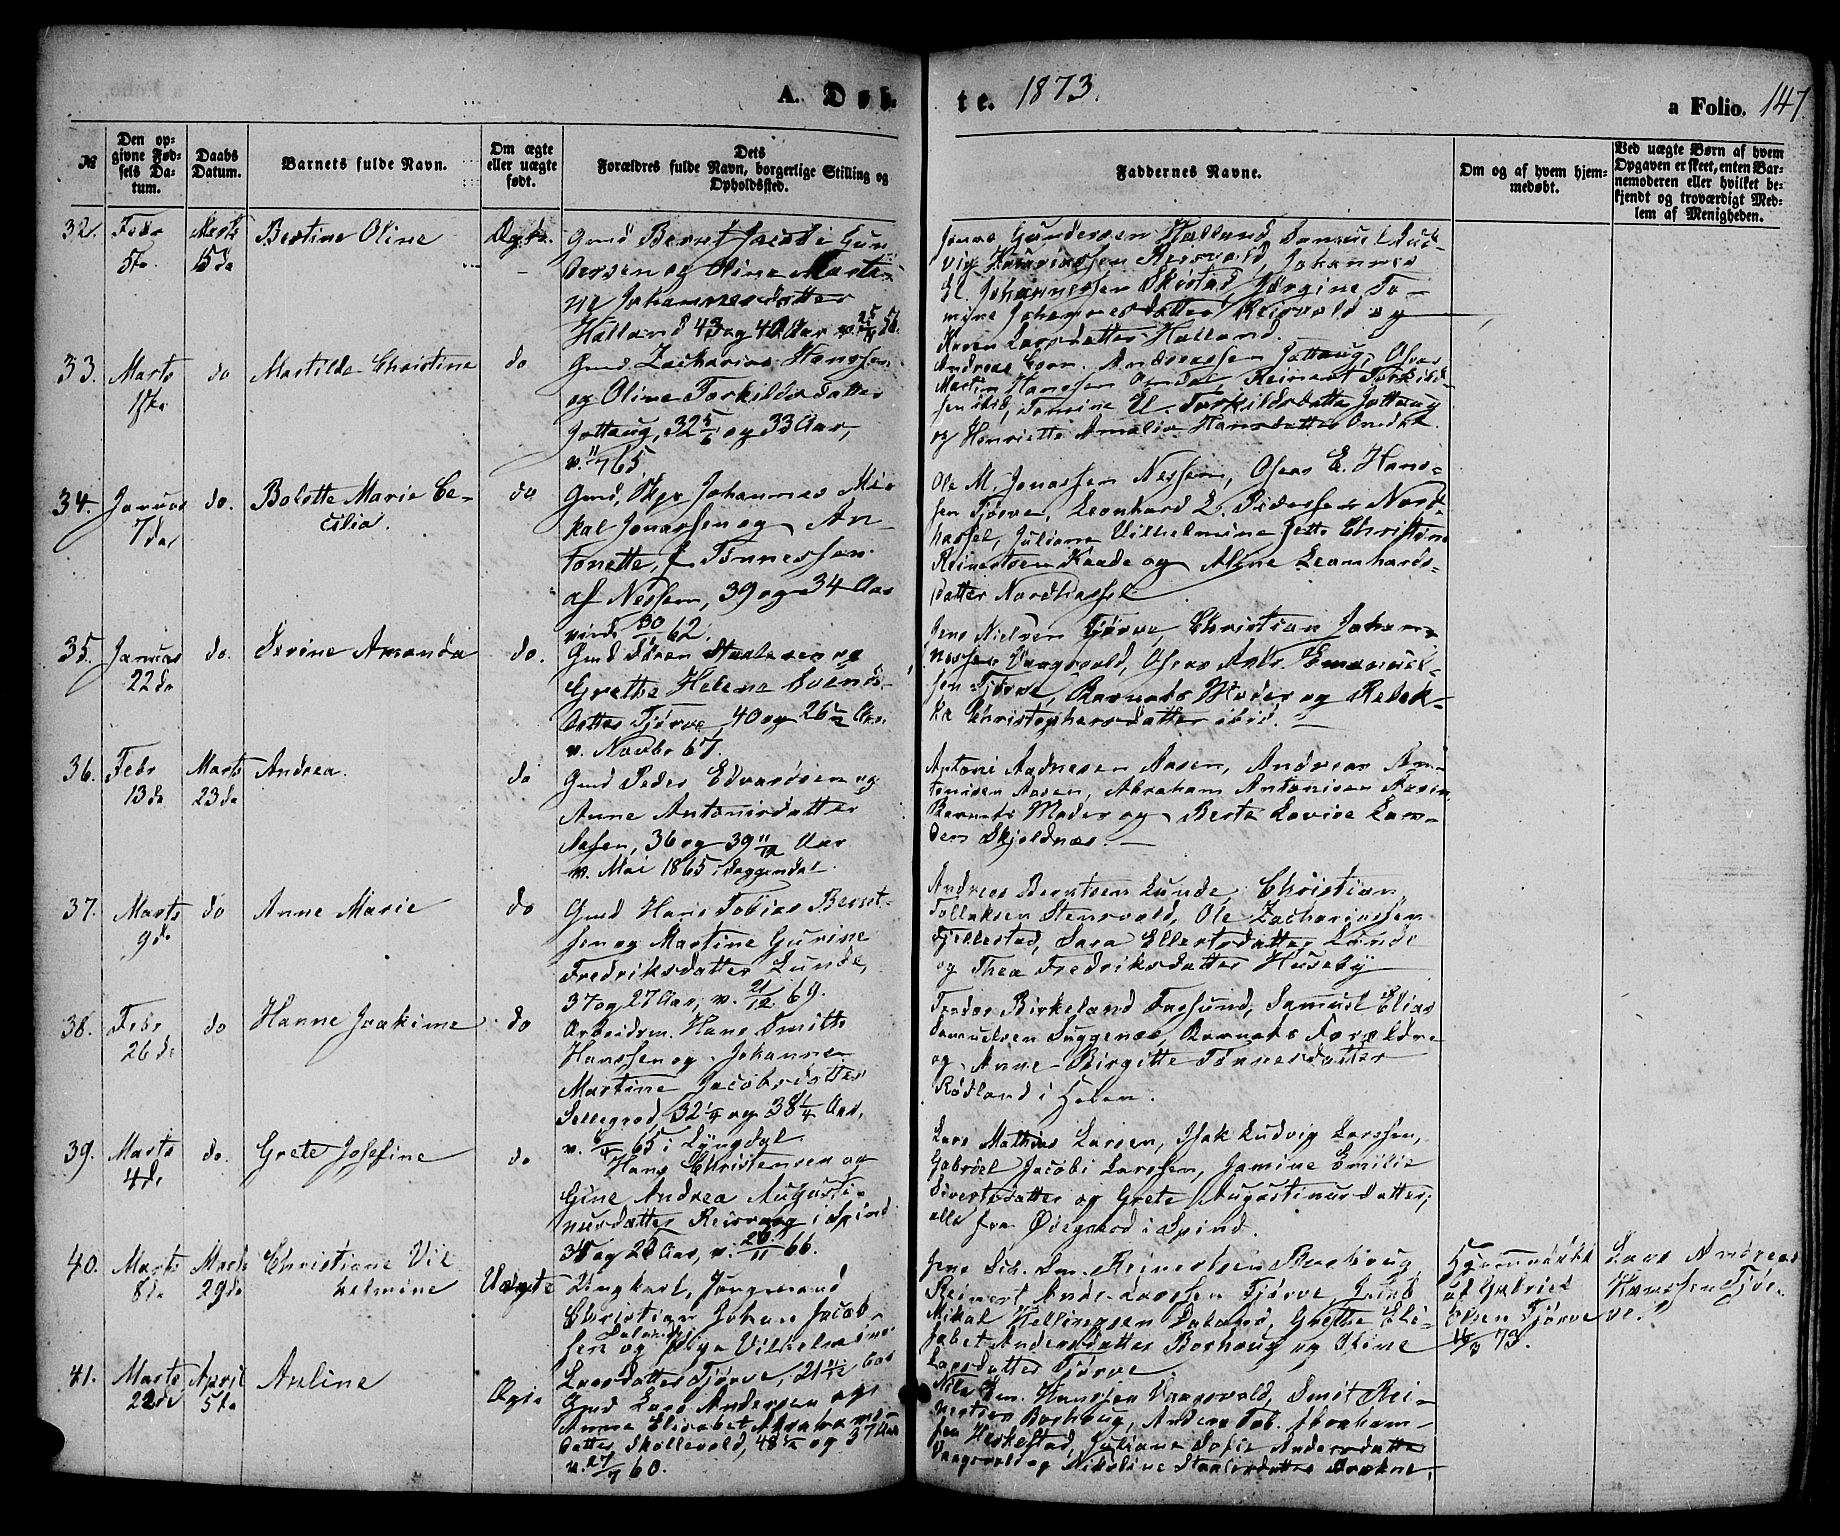 A. Døb-
te. 1873.
a Folio. 147
№
Den op-
givne Fød-
sels Da-
tum.
Daabs
Datum.
Barnets fulde Navn.
Om ægte
eller uægte
født.
Dets
Forældres fulde Navn, borgerlige Stilling og
Opholdssted.
Faddernes Navne.
Om og af hvem hjem-
medøbt.
Ved uægte Børn af hvem
Opgaven er skeet, enten Bar-
nemoderen eller hvilket be-
kjendt og troværdigt Med-
lem af Menigheden.
32.
Febr
5te.
Marts
15de
Bertine Oline
Ægte.
Gmd Bernt Jacobi Gun
dersen og Oline Marti-
ne Johannesdatter
Halland 43 og 40 Aar
Jonas Gundersen Halland, Samuel Lud-
vig Reisvold, Johannes
El. Johannessen Skistad, Jørgine To-
mine Johannesdatter Reisvold og
Karen Larsdatter Halland.
33.
Marts
1ste
do
Matilde Christine
do
Gmd. Zacharias Hanssen
og Oline Torkildsdatter
Jøttaug, 32 5/6 og 33 Aar,
v. 11/7 65
Andreas Corn. Andreassen Jøttaug, Osvas
Martin Hanssen Omdal, Reinert Torkild-
sen ibid, Tomine El. Torkildsdatter Jøttaug
og Henriette Amalie Hansdatter Omdal.
34.
Januar
7de
do.
Bolette Marie Ce-
cilia.
do
Gmd, Skpr Johannes Mi-
kal Jonassen og An-
tonette, f. Tønnessen
af Nessem, 39 og 34 Aar
viede 30/ 62.
Ole M. Jonassen Nessem, Oseas E. Hans-
sen Tjørve, Leonhard L. Pedersen Nord-
hassel, Juliane Vilhelmine Jette Christine
Reinertsen Kaade og Aline Leonhards-
datter Nordhassel
35.
Januar
22de
do.
Serine Amanda
do.
Gmd Søren Staalesen og
Grethe Helene Svends-
datter Tjørve, 40 og 26 1/2 Aar.
v. Novbr 67.
Jens Nielsen Tjørve, Christian Johan-
nessen Vaagsvold, Oseas Andr. Emanuel-
sen Tjørve, Barnets Moder og Rebek-
ka Christophersdatter ibid.
36.
Febr
13de
Marts
23de
Andrea.
do
Gmd Peder Edvardsen og
Anne Antonisdatter
Aasen, 36 og 39 11/12 Aar
v. Mai 1865 i Soggendal.
Antoni Aadnesen Aasen, Andreas An-
tonisen Aasen, Abraham Antonisen Aasen,
Barnets Moder og Berte Lovise Lar-
den Skjoldnæs.
37.
Marts
9de
do
Anne Marie
do
Gmd Hans Tobias Bernt-
sen og Martine Gurine
Fredriksdatter Lunde,
37 og 27 Aar, v. 21/12 69.
Andreas Berntsen Lunde, Christian
Tollaksen Stensvold, Ole Zachariassen
Fjellestad, Sara Ellertsdatter Lunde
og Thea Fredriksdatter Huseby
38.
Febr
26de
do
Hanne Joakime
do
Arbeidsm. Hans Smith
Hanssen og Johanne
Martine Jacobsdatter
Sellegrod, 32 1/4 og 38 1/4 Aar,
v. 65 i Lyngdal
Birkeland Farsund, Samuel Elias
Samuelsen Luggenæs, Barnets Forældre
og Anne Birgitte Tønnesdatter
Rødland i Heren.
39.
Marts
4de
do.
Grete Josefine
do
Hans Christensen og
Gine Andrea Augusti-
nusdatter Reisvaag i Spind
38 og 28 Aar, v. 20/11 66.
Lars Mathias Larsen, Isak Ludvig Larssen,
Gabriel Jacobi Larssen, Jamine Emilie
Sivertsdatter og Grete Augustinusdatter,
alle fra Ødegaard i Spind.
40.
Marts
8de
Marts
29de
Christiane Vil
helmine
Uægte
Ungkarl, Jungmand
Christian Johan Jacob-
sen og Pige Vilhelmine
Larsdatter Tjørve, 21 11/12
Jens Reinertsen Borhoug,
Reinert Andr. Larssen Tjørve, Jacob
Mikal Helliresen Daland, Grethe Eli-
sabet Andersdatter Borhoug og Stine
Larsdatter Tjørve
Hjemmedøbt
af Gabriel
Olsen Tjørve
16/3 73.
Lars Andreas
Hanssen Tjør-
ve.
41.
Marts
22de
April
5te
Anline
Ægte
Gmd Lars Andersen og
Anne Elisabet Abrahams-
datter Skollevold, 48 1/2 og 37 Aar
v. 27/7 60.
Nils Em. Hanssen Vaagsvold, Smit Rei-
nertsen Borhoug, Anders Tob. Abraham-
sen Herkestad, Juliane Sofie Andersdatter
Vaagsvold og Nikoline Staalesdatter Brekne.